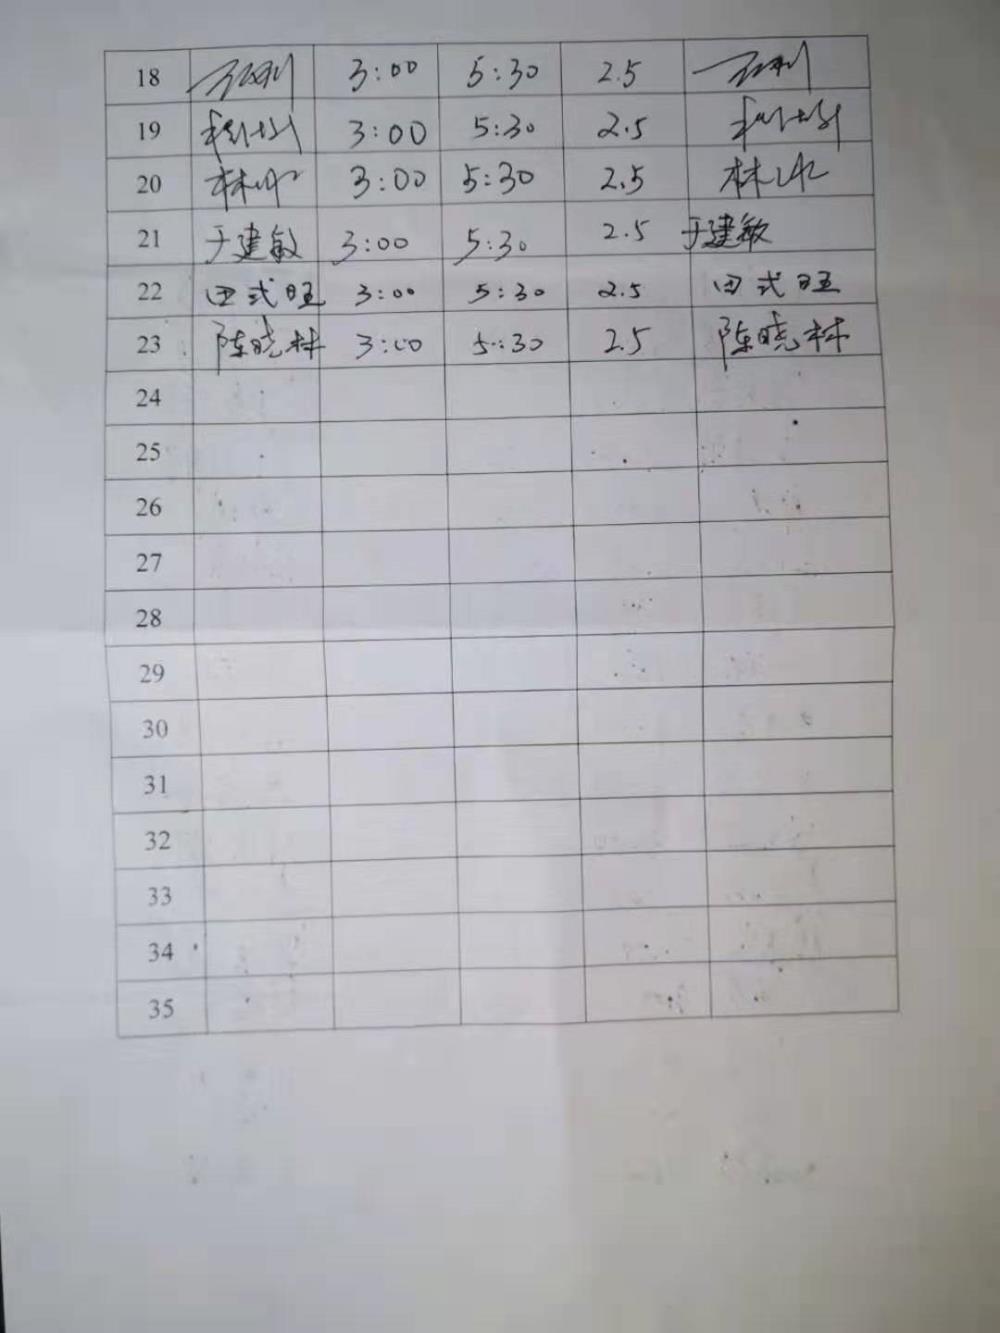 18 3:00 5:30 2.5
19 3:00 5:30 2.5
20 林冰 3:00 5:30 2.5 林冰
21 于建敏 3:00 5:30 2.5 于建敏
22 田式旺 3:00 5:30 2.5 田式旺
23 陈晓林 3:00 5:30 2.5 陈晓林
24
25
26
27
28
29
30
31
32
33
34
35